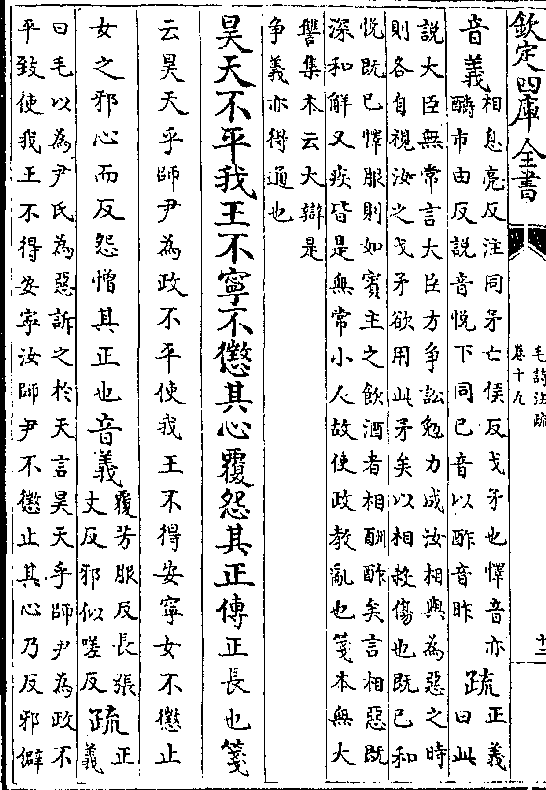 欽定四庫全書
毛詩注疏
卷十九
十二
音義相息亮反注同矛亡侯反戈矛也懌音亦
醻市由反説音悦下同已音以酢音昨
疏正義
曰此
説大臣無常言大臣方争訟勉力成汝相與為惡之時
則各自視汝之戈矛欲用此矛矣以相殺傷也既已和
悦既已懌服則如賓主之飲酒者相酬酢矣言相惡既
深和解又疾皆是無常小人故使政教亂也箋本無大
讐集本云大辯是
争義亦得通也
昊天不平我王不寧不懲其心覆怨其正傳正長也箋
云昊天乎師尹為政不平使我王不得安寧女不懲止
女之邪心而反怨憎其正也音義覆芳服反長張
丈反邪似嗟反
疏正
義
曰毛以為尹氏為惡訴之於天言昊天乎師尹為政不
平致使我王不得安寧汝師尹不懲止其心乃反邪僻